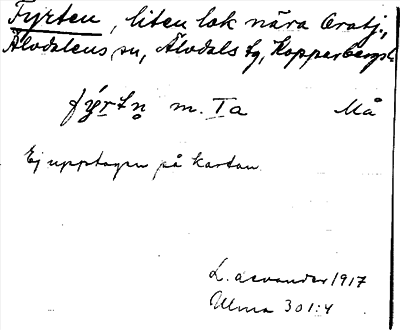 Fyrten, liten lok nära Oratj.,
Älvdalens sn, Älvdals tg, Kopparbergs l.
fýrtn̥ m. Ia Må
Ej upptagen på kartan.
L. Levander 1917
Ulma 301:4